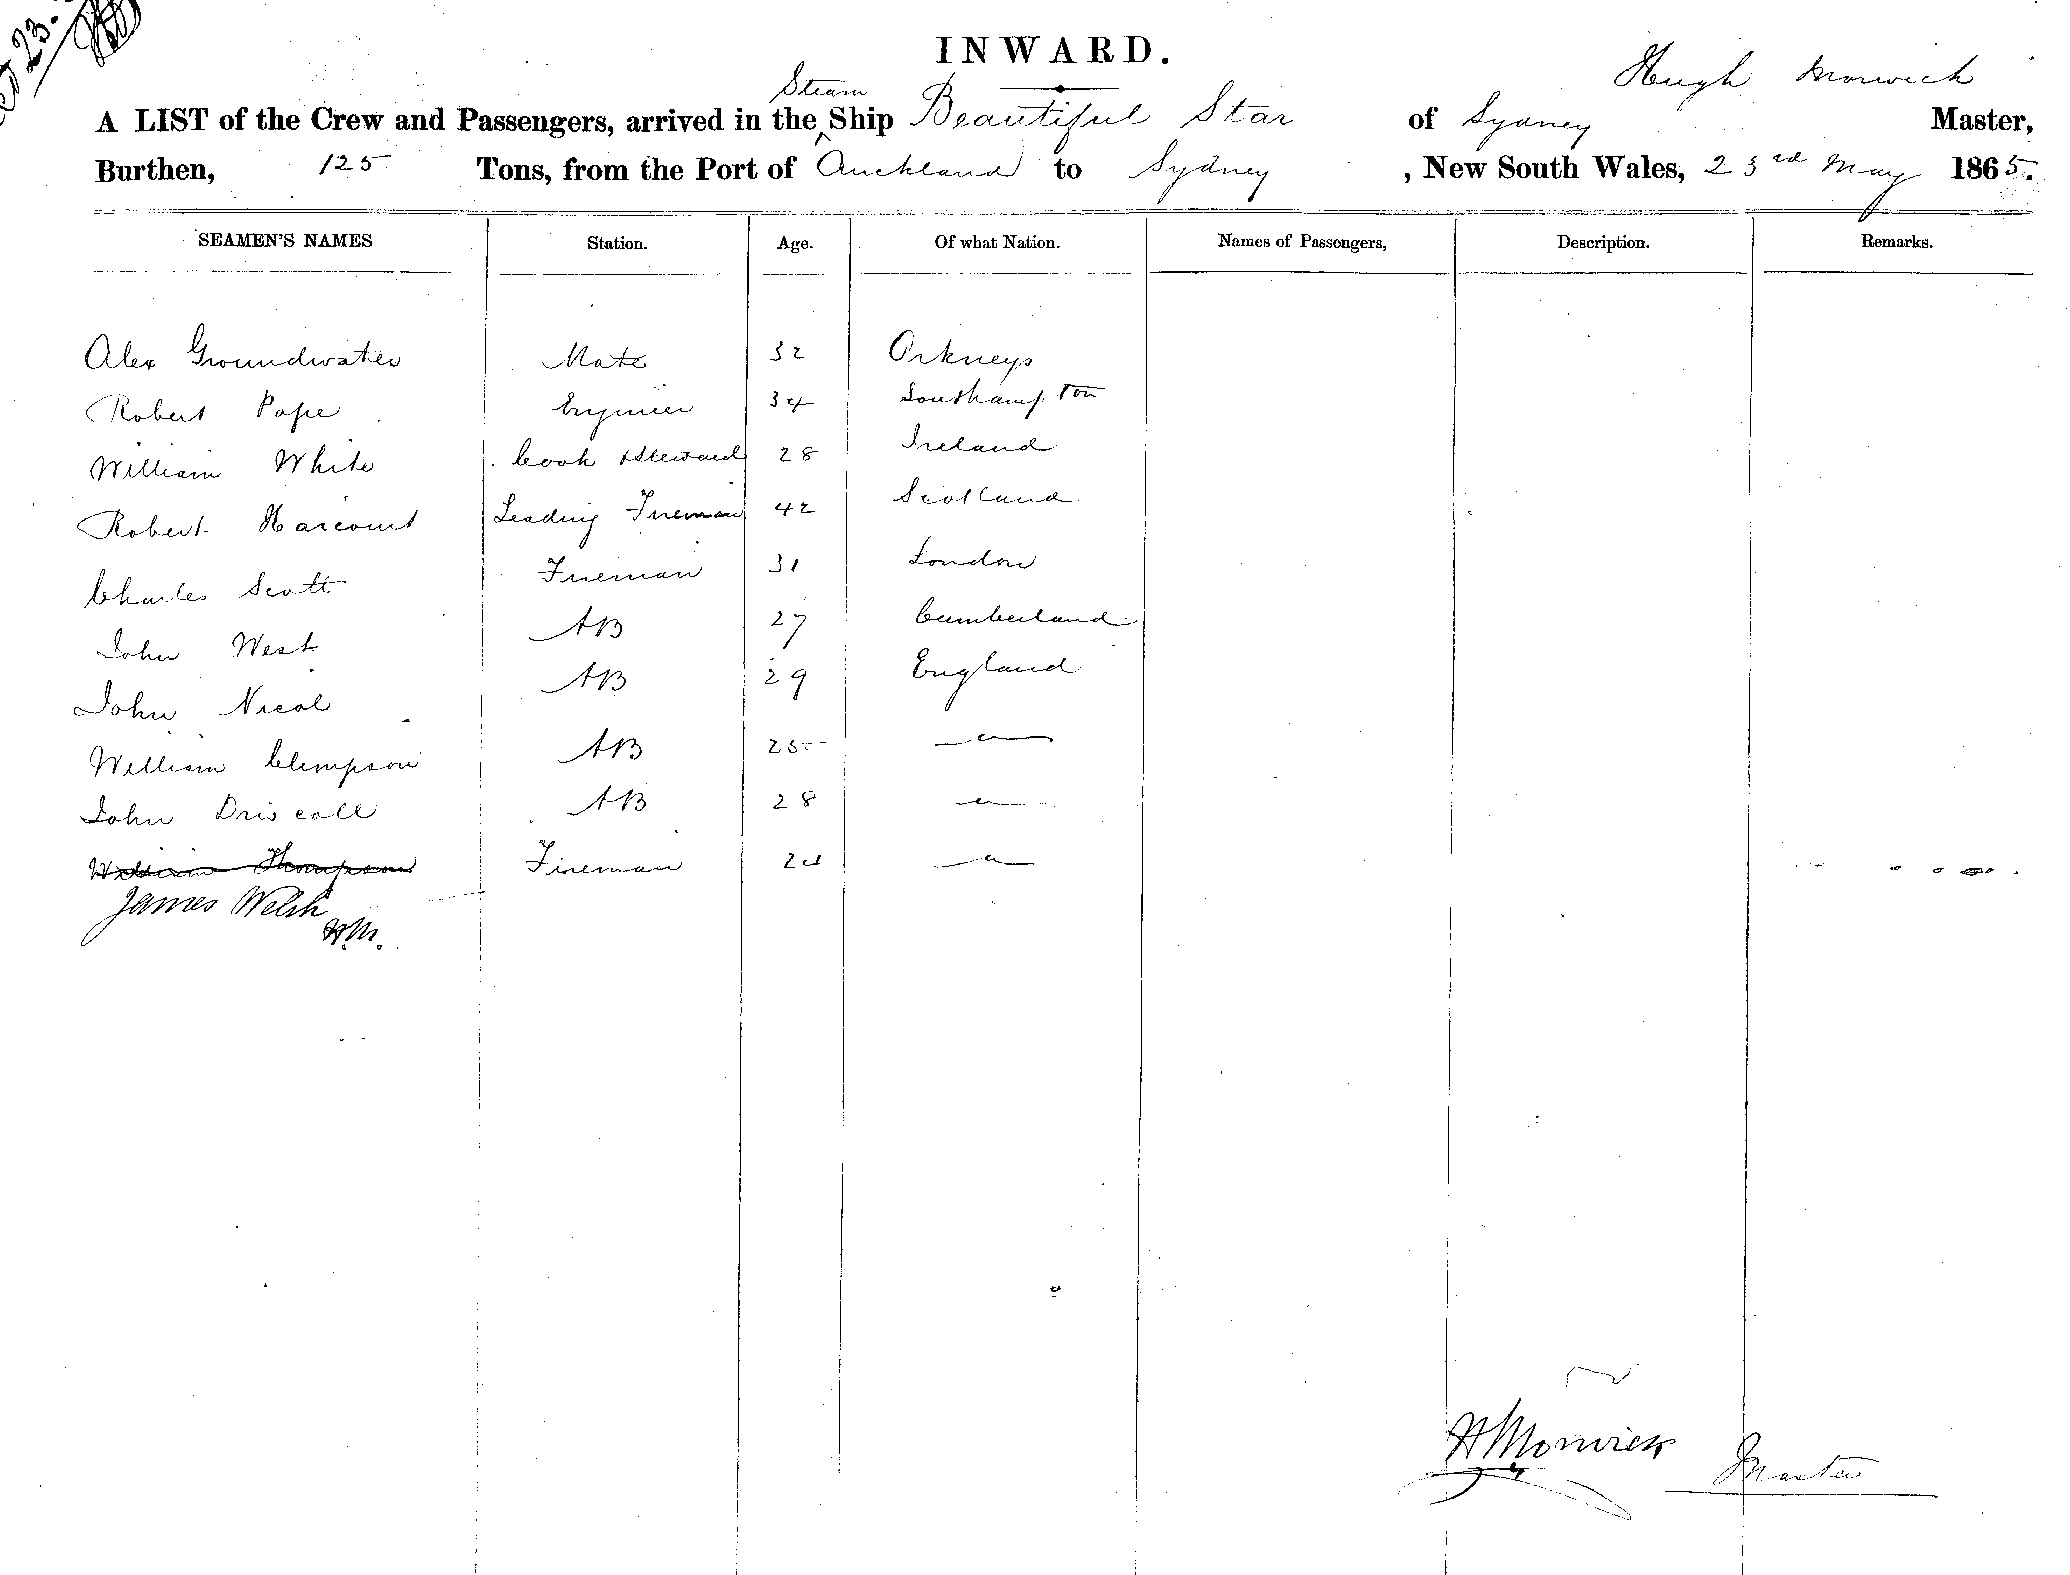 23
INWARD.
Hugh Morwick
Steam
A LIST of the Crew and Passengers, arrived in the Ship Beautiful Star of Sydney Master,
Burthen, 125 Tons, from the Port of Auckland to Sydney , New South Wales, 23rd May 1865.
SEAMEN'S NAMES Station. Age. Of what Nation. Names of Passengers, Description. Remarks.
Alex Groundwater Mate 32 Orkneys
Robert Pope Engineer 34 Southampton
William White Cook & Steward 28 Ireland
Robert Harcourt Leading Fireman 42 Scotland
Charles Scott Fireman 31 London
John West AB 27 Cumberland
John Nicol AB 29 England
William Clempson AB 25 — " —
John Driscoll AB 28 — " —
William Thompson Fireman 24 — " —
James Welsh
H.M.
H Morwick Master